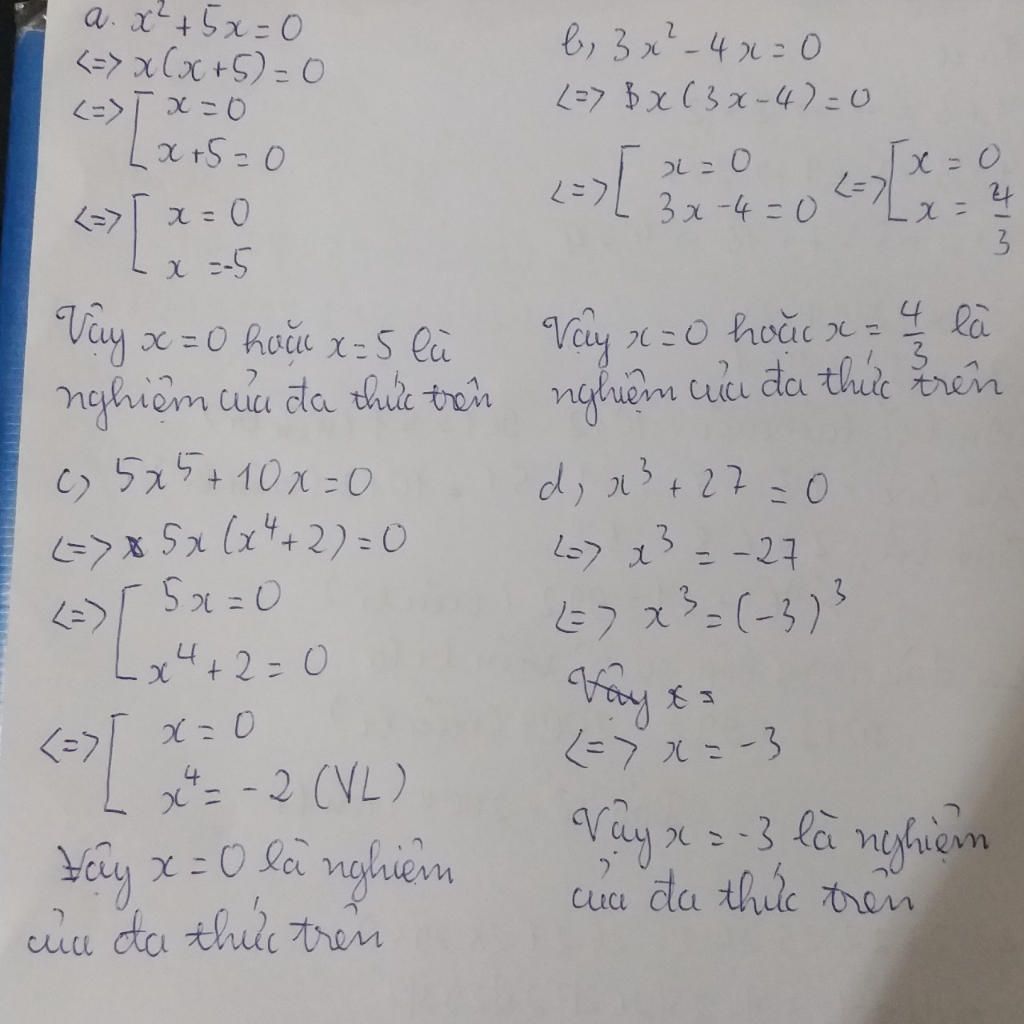 a. x² + 5x = 0
<=> x(x+5) = 0
<=> [ x = 0
x+5 = 0
<=> [ x = 0
x = -5
Vậy x = 0 hoặc x = 5 là
nghiệm của đa thức trên
b, 3x² - 4x = 0
<=> x(3x-4) = 0
<=> [ x = 0 <=> [ x = 0
3x-4 = 0 x = 4/3
Vậy x = 0 hoặc x = 4/3 là
nghiệm của đa thức trên
c, 5x⁵ + 10x = 0
<=> 5x(x⁴+2) = 0
<=> [ 5x = 0
x⁴ + 2 = 0
<=> [ x = 0
x⁴ = -2 (VL)
Vậy x = 0 là nghiệm
của đa thức trên
d, x³ + 27 = 0
<=> x³ = -27
<=> x³ = (-3)³
Vậy x =
<=> x = -3
Vậy x = -3 là nghiệm
của đa thức trên